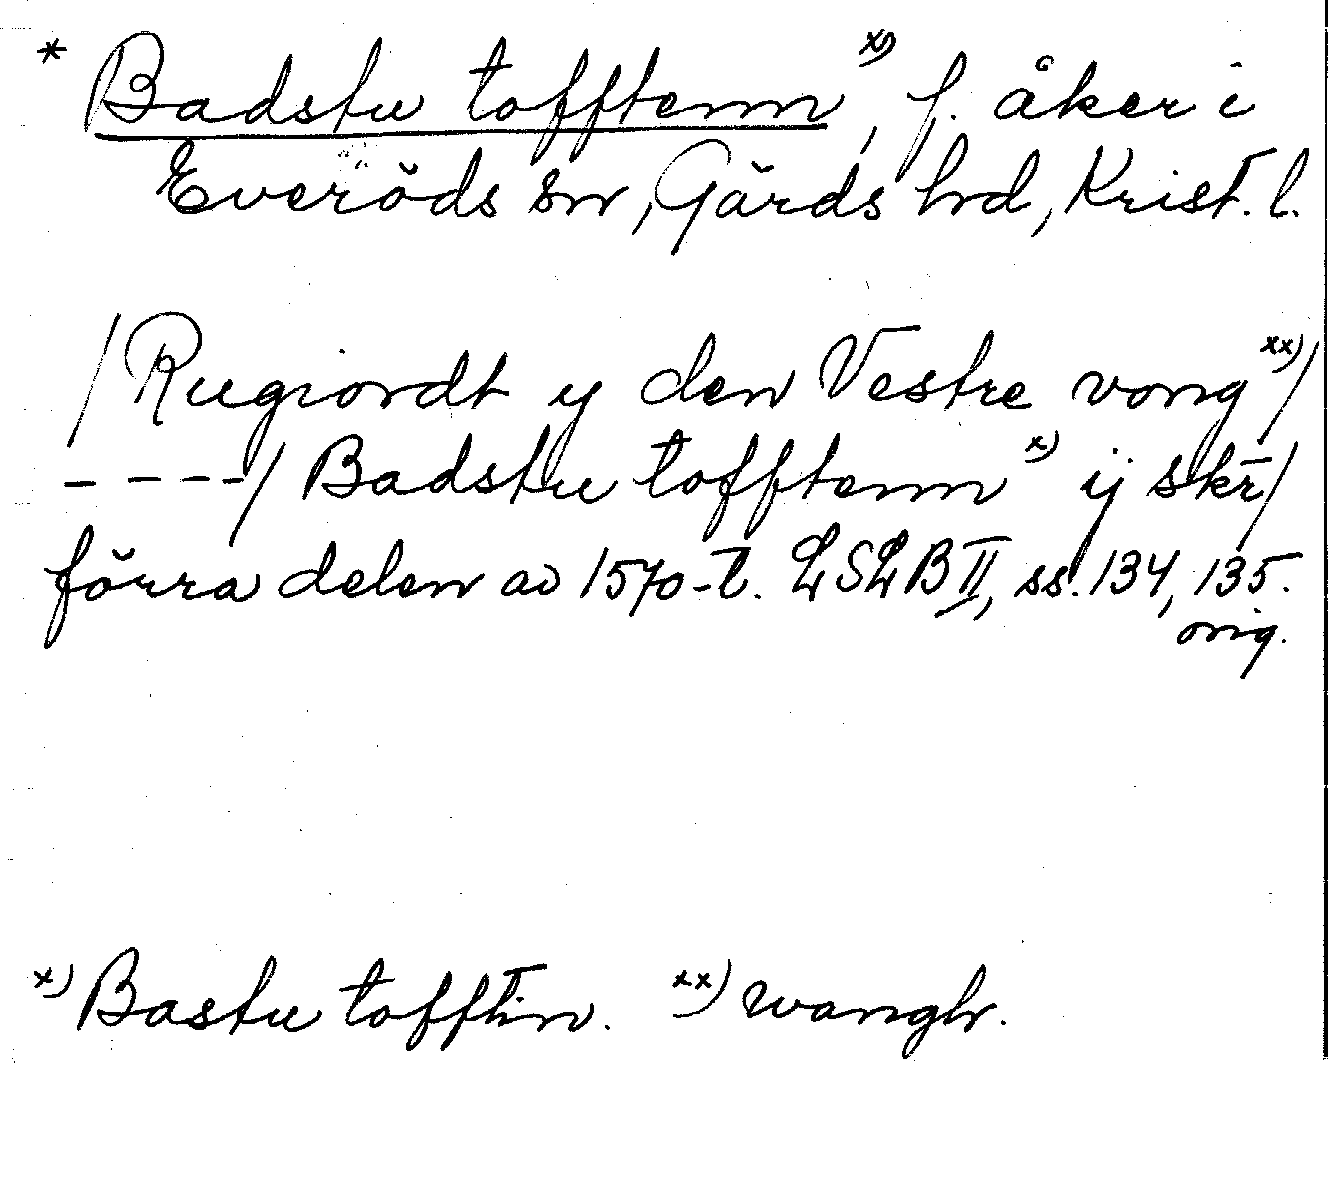 * Badstu tofftenn x), f. åker i
Everöds sn, Gärds hd, Krist. l.
/Rugiordt y den Vestre vong xx)/
- - - -/ Badstu tofftenn x) ij skr̄/
förra delen av 1570-t. LSLB II, ss. 134, 135.
orig.
x) Bastu tofftin. xx) wangh.